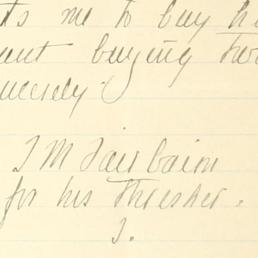 ts me to buy h
ant buying tw
ncerely
J M Fairbairn
for his Thresher.
J.